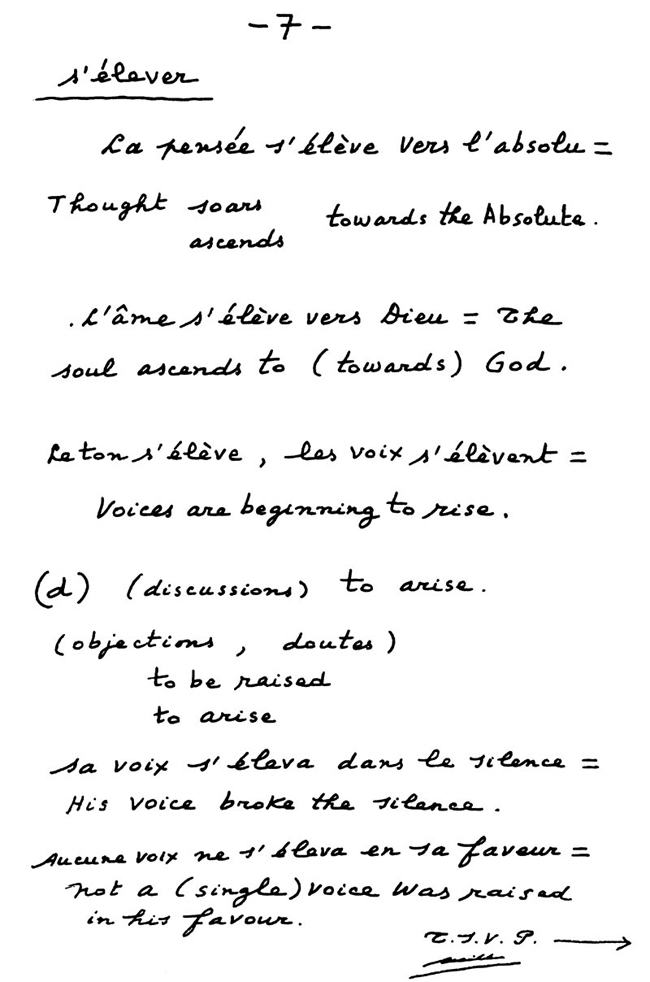 -7-
s'élever
La pensée s'élève vers l'absolu =
Thought soars towards the Absolute.
ascends
. L'âme s'élève vers Dieu = The
soul ascends to (towards) God.
Le ton s'élève, les voix s'élèvent =
Voices are beginning to rise.
(d) (discussions) to arise.
(objections, doutes)
to be raised
to arise
Sa voix s'éleva dans le silence =
His voice broke the silence.
Aucune voix ne s'éleva en sa faveur =
not a (single) voice was raised
in his favour.
T.S.V.P. →